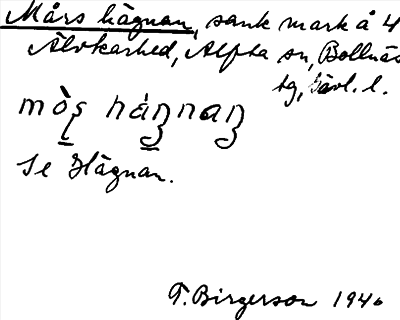 Mårs hägnan, sank mark å 4
Älvkarhed, Alfta sn, Bollnäs
tg, Gävl. l.
mò̱ʂ há̱ŋnaŋ
Se Hägnan.
T. Birgerson 1946